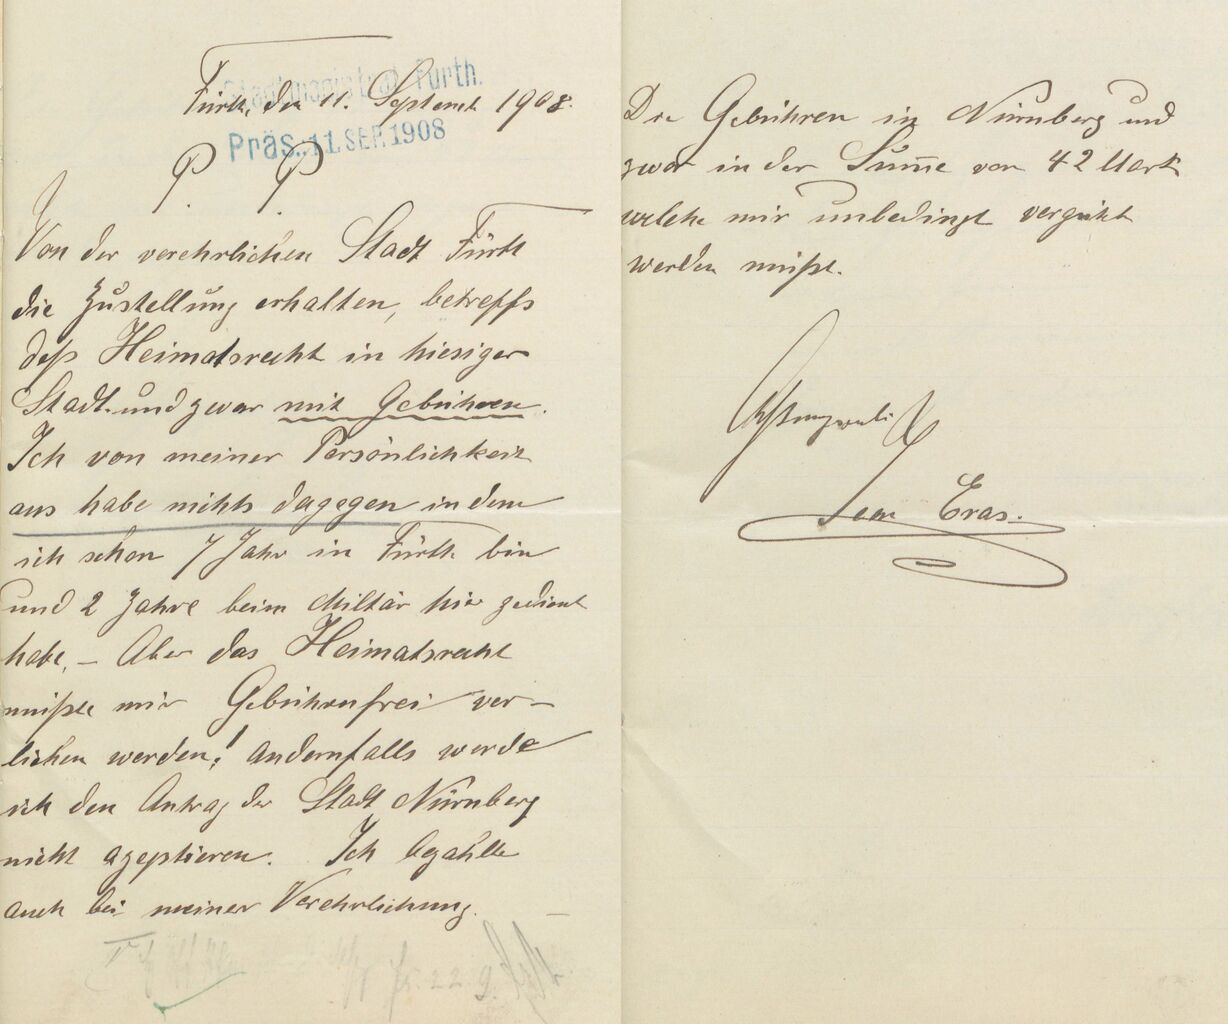 Stadtmagistrat Fürth.
Fürth, den 11. September 1908.
Präs. 11. SEP. 1908
P. P.
Von der verehrlichen Stadt Fürth
die Zustellung erhalten, betreffs
deß Heimatsrecht in hiesiger
Stadt und zwar mit Gebühren.
Ich von meiner Persönlichkeit
aus habe nichts dagegen indem
ich schon 7 Jahr in Fürth bin
und 2 Jahre beim Militär hier gedient
habe. – Aber das Heimatsrecht
müßte mir Gebührenfrei ver–
liehen werden! Andernfalls werde
ich den Antrag der Stadt Nürnberg
nicht azeptieren. Ich bezahlte
auch bei meiner Verehrlichung
22. 9.
Die Gebühren in Nürnberg und
zwar in der Sum̅e von 42 Mark
welche mir unbedingt vergütet
werden müßte.
Achtungsvollst
Jean Eras.